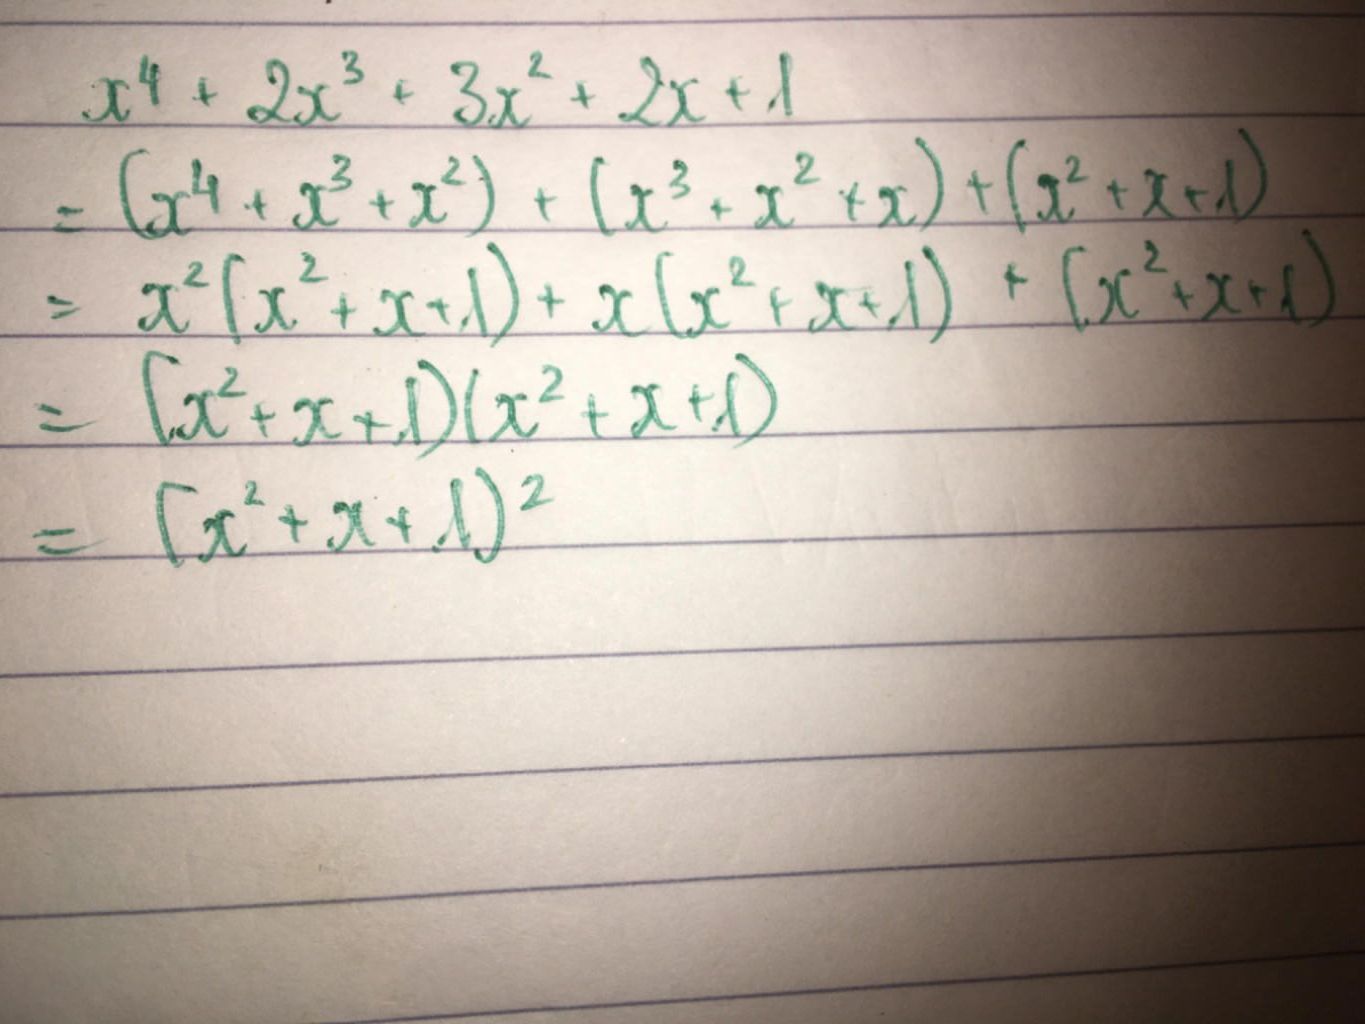 x⁴ + 2x³ + 3x² + 2x + 1
= (x⁴ + x³ + x²) + (x³ + x² + x) + (x² + x + 1)
= x²(x² + x + 1) + x(x² + x + 1) + (x² + x + 1)
= (x² + x + 1)(x² + x + 1)
= (x² + x + 1)²